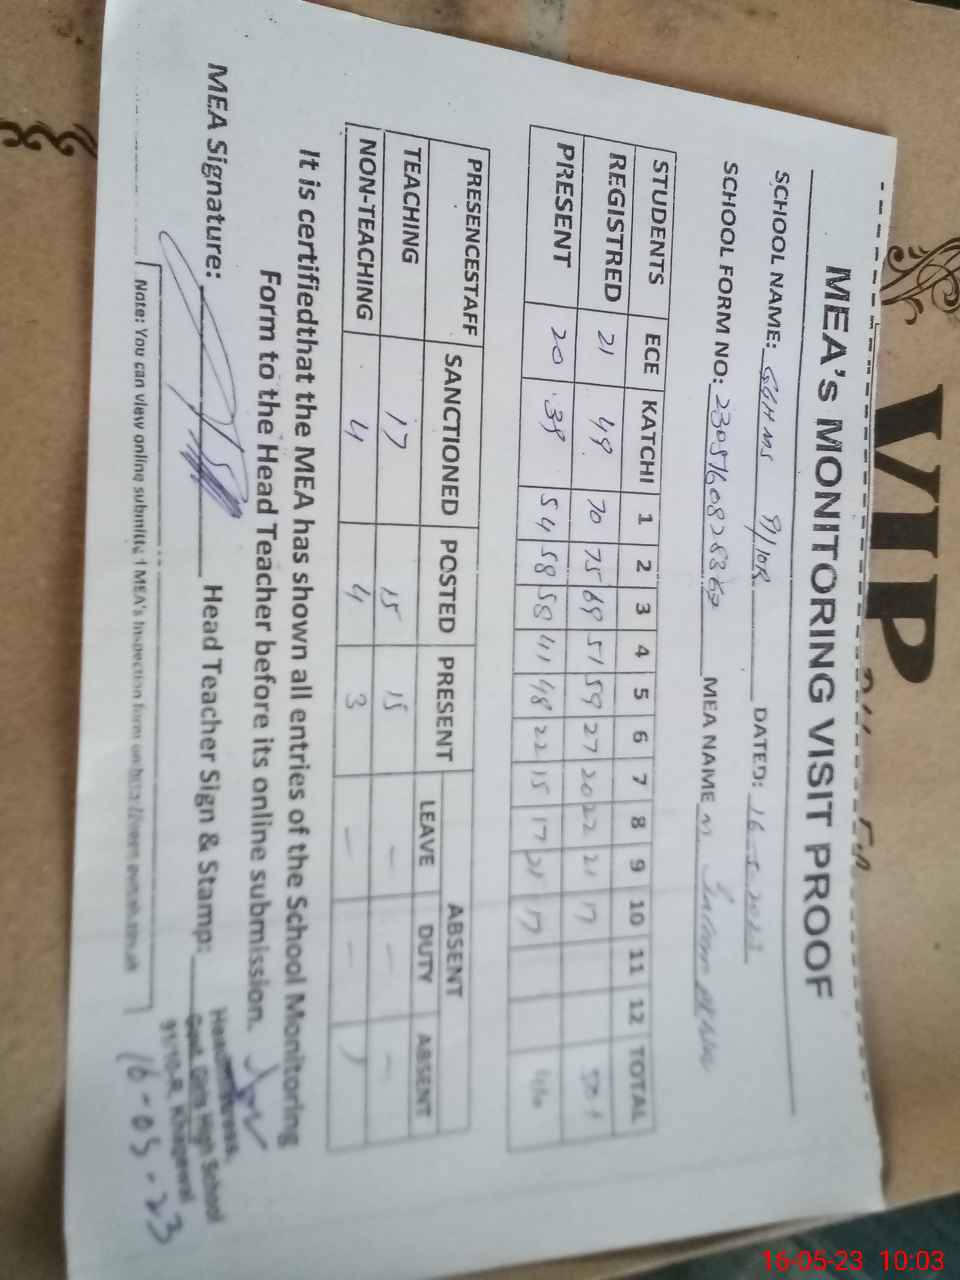 VIP
MEA's MONITORING VISIT PROOF
SCHOOL NAME: GGHMS 91/10R DATED: 16-5-2023
SCHOOL FORM NO: MEA NAME M.
STUDENTS ECE KATCHI 1 2 3 4 5 6 7 8 9 10 11 12 TOTAL
REGISTRED 21 49 70 75 69 51 59 27 20 22 21 17
PRESENT 20 39 54 58 58 41 48 22 15 17 21 17
PRESENCESTAFF SANCTIONED POSTED PRESENT ABSENT
LEAVE DUTY ABSENT
TEACHING 17 15 15 - - -
NON-TEACHING 4 4 3 - - 1
It is certifiedthat the MEA has shown all entries of the School Monitoring
Form to the Head Teacher before its online submission.
MEA Signature: Head Teacher Sign & Stamp:
Headmistress,
Govt. Girls High School
91/10-R, Khanewal
16-05-23
Note: You can view online submitted MEA's Inspection form on
16-05-23 10:03